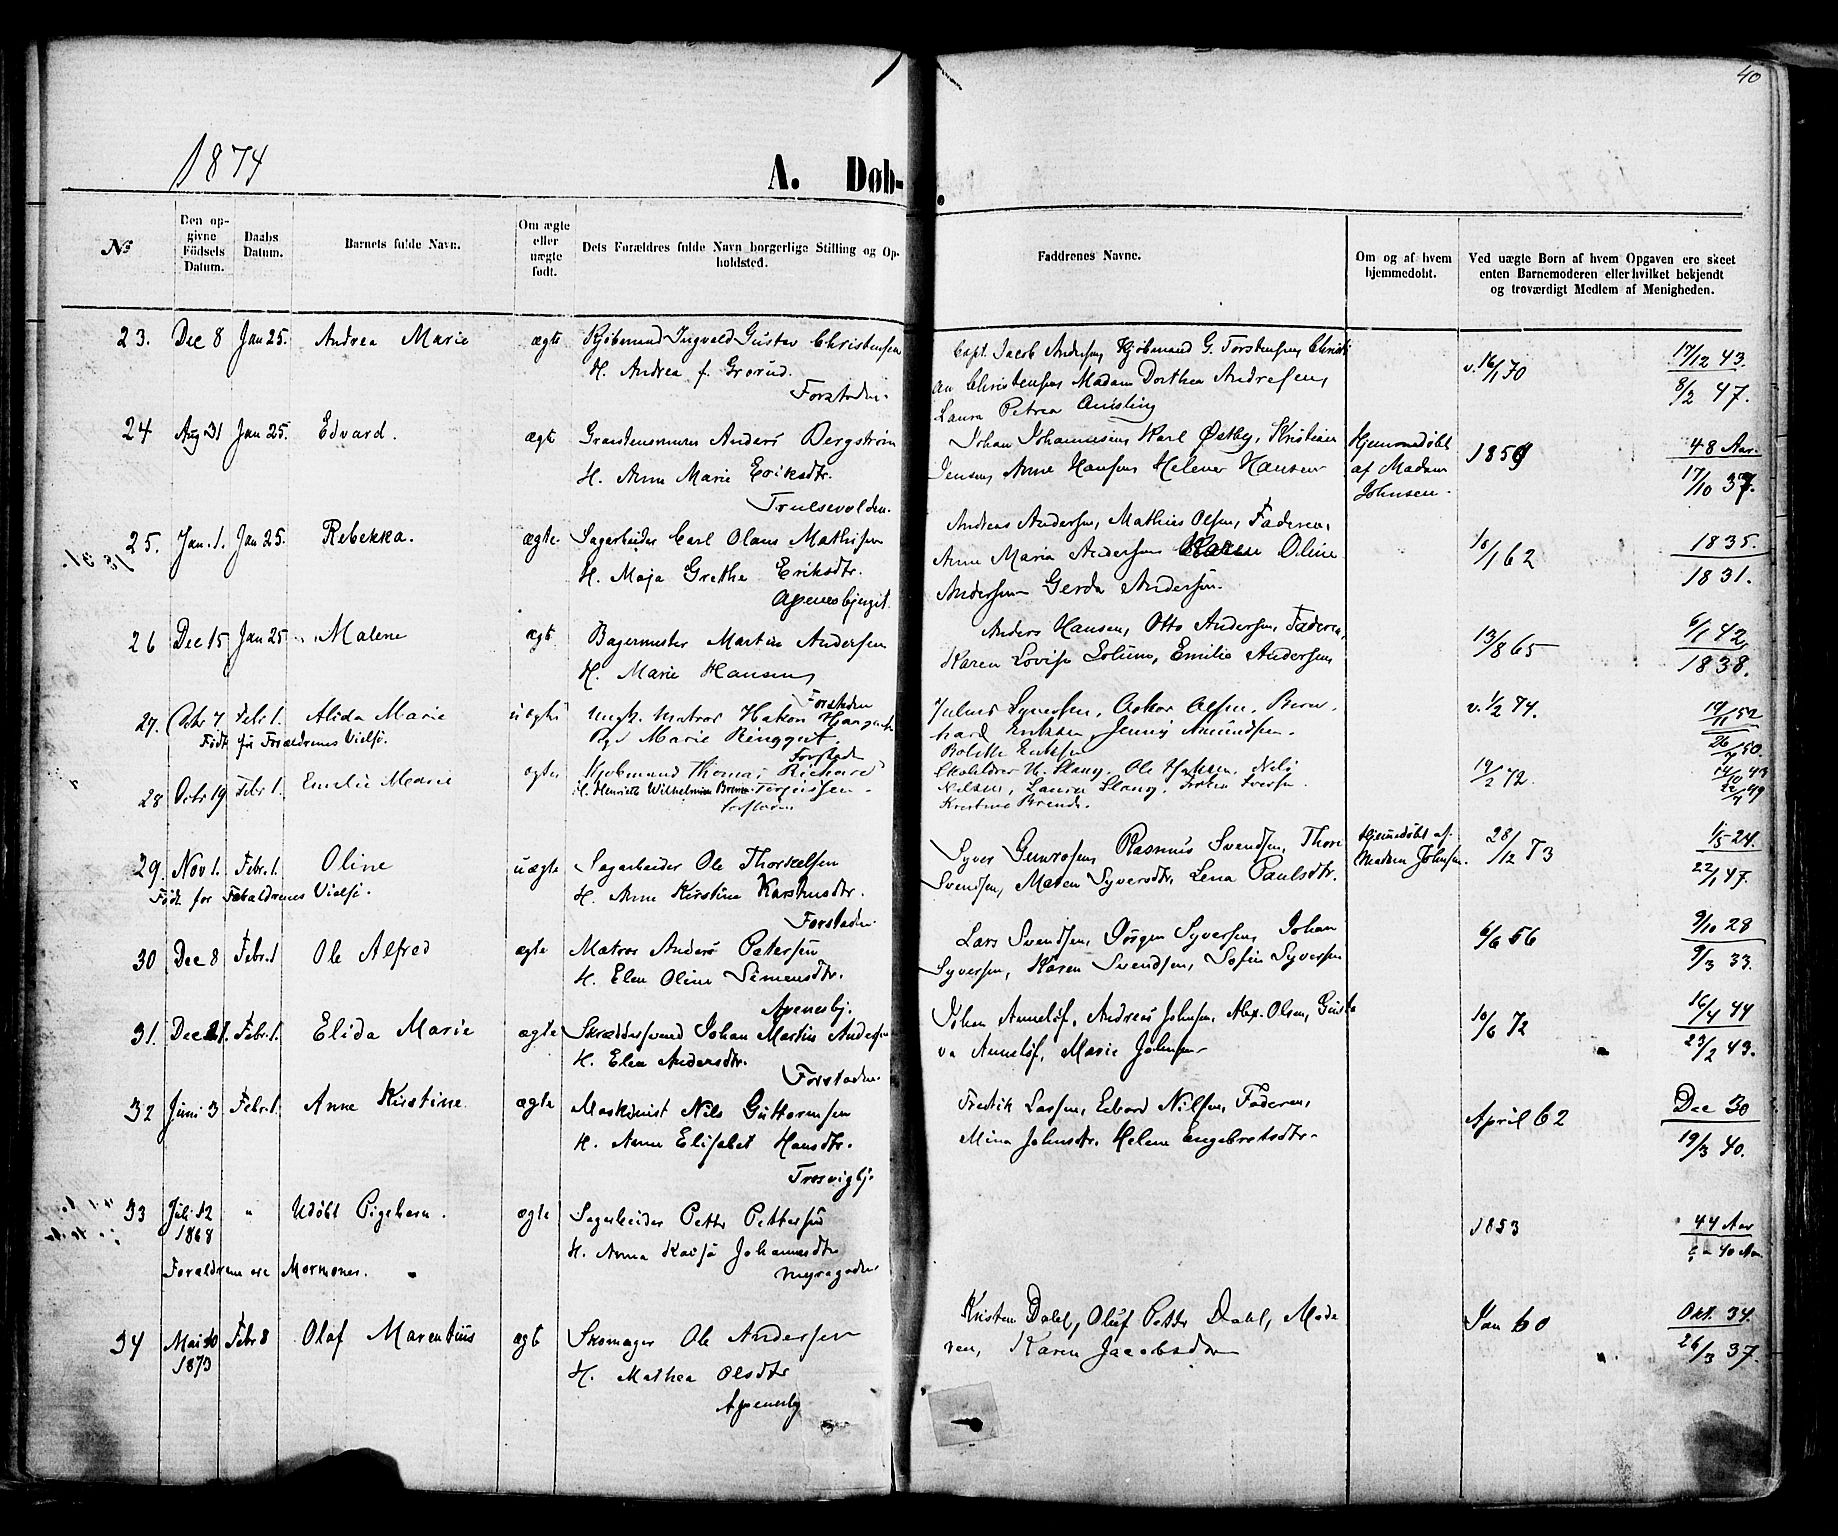 40
1874
A. Døb-
.
No
Den op-
givne
Födsels
Datum.
Daabs
Datum.
Barnets fulde Navn.
Om ægte
eller
uægte
født.
Dets Forældres fulde Navn borgerlige Stilling og Op-
holdsted.
Faddrenes Navne.
Om og af hvem
hjemmedobt.
Ved uægte Børn af hvem Opgaven ere skeet
enten Barnemoderen eller hvilket bekjendt
og troværdigt Medlem af Menigheden.
23. Dec 8 Jan 25. Andrea Marie ægte Kjøbmand Ingvald Gustav Christensen
H. Andrea f. Grorud.
Forstaden.
Capt. Jacob Andersen, Kjøbmand G. Torstensen, Christi
an Christensen, Madam Dorthea Andresen,
Laura Petrea
v. 16/1 70
17/12 43.
8/2 47.
24 Aug 31 Jan 25. Edvard. ægte Anders Bergstrøm
H. Anne Marie Eriksdtr.
Trulsevolden.
Johan Johannesen, Karl Østby, Kristian
Jensen, Anne Hansen, Helene Hansen
Hjemmedøbt
af Madam
Johnsen.
1859
48 Aar.
17/10 37.
25. Jan. 1. Jan 25. Rebekka. ægte Sagarbeider Carl Olaus Mathisen
H. Maja Grethe Eriksdtr.
Apenesbjerget.
Andreas Andersen, Mathias Olsen, Faderen,
Anne Maria Andersen, Karen Oline
Andersen Gerda Andersen.
10/1 62
1835.
1831.
26 Dec 15 Jan 25 Malene ægte Bagermester Martin Andersen
H. Marie Hansen
Forstaden
Anders Hansen, Otto Andersen, Faderen,
Karen Lovise Solum, Emilie Andersen
13/8 65
6/1 42
1838.
27. Octbr 7 Febr 1. Alida Marie uægte Ungk. Matros Hakon
Født før Forældrenes Vielse.
Pige Marie
Forstad
Julius Syversen, Oskar Olsen, Bern-
hard Eriksen, Jenny Amundsen.
Bolette Eriksen
v. 1/2 74.
28 Octbr 19 Febr 1. Emilie Marie ægte Kjøbmand Thomas Richard
H. Henriette Wilhelmine
Forstaden
Skolebdr H. Slang, Ole Hansen, Nils
Nilsen, Laura Slang,
Kristine Brende.
19/2 72.
29. Nov 1. Febr. 1. Oline uægte Sagarbeider Ole Thorkelsen
Født før Forældrenes Vielse.
H. Anne Kirstine Karstensdtr.
Forstaden
Syver Gunrosen, Rasmus Svendsen, Thore
Svendsen, Maren Syversdtr, Lena Paulsdtr.
Hjemmedøbt af
Madam Johnsen.
28/12 73
1/5 24.
22/1 47.
30 Dec 8 Febr. 1 Ole Alfred ægte Matros Anders Petersen
H. Elen Oline Simensdtr.
Apenesbj.
Lars Svendsen, Jørgen Syversen, Johan
Syversen, Karen Svendsen, Sofie Syversen
6/6 56
9/10 28
9/3 33.
31. Dec 21. Febr. 1. Elida Marie ægte Skrædersvend Johan Martin Andersen
H. Elen Andersdtr.
Forstaden.
Johan Anneløf, Andreas Johnsen, Alex. Olsen, Gusta
va Anneløf, Marie Johnsen
10/6 72
16/4 44
23/2 43.
32 Juni 3 Febr. 1. Anne Kirstine ægte Maskinist Nils Guttormsen
H. Anne Elisabet Hansdtr.
Trosvigbj.
Fredrik Larsen, Edvard Nilsen, Faderen,
Mina Johnsdtr. Helene Engebretsdtr.
April 62
Dec 30
19/3 40.
33 Juli 12 " Udøbt Pigebarn. ægte Sagarbeider Petter Pettersen
1868
H. Anna Kaisa Johannesdtr
Forældrene ere Mormoner.
Myregaden
1853
44 Aar
40 Aar
34 Mai 10 Febr 8 Olaf Marentius ægte Skomager Ole Andersen
1873
H. Mathea Olsdtr
Apenesbj
Kristen Dahl, Oluf Petter Dahl, Mode
ren, Karen Jacobsdtr
Jan 60
Okt. 34.
26/3 37.